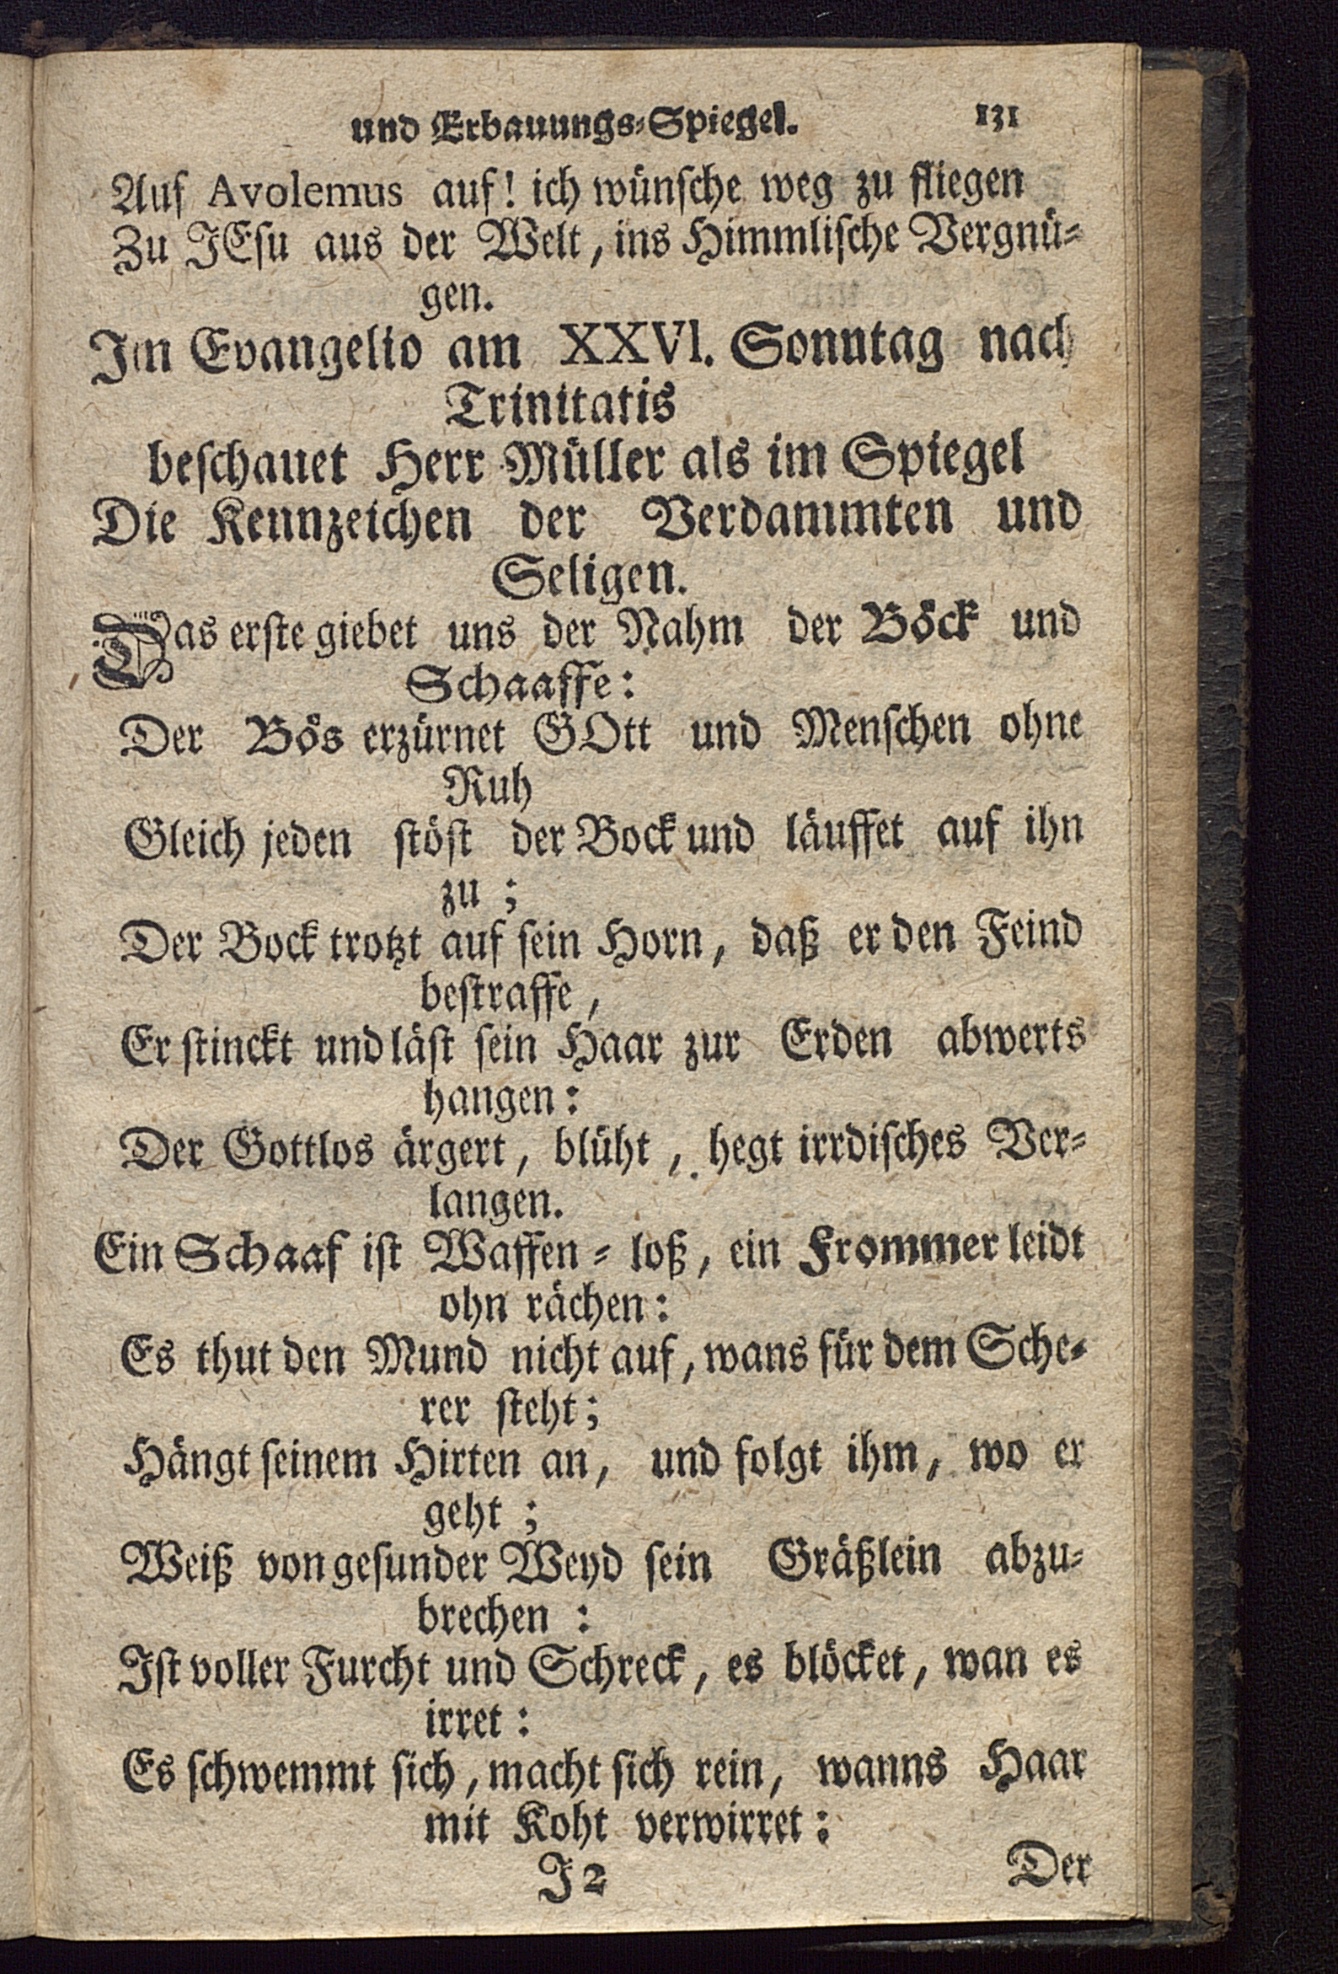 und Erbauungs-Spiegel. 131
Auf Avolemus auf! ich wünsche weg zu fliegen
Zu JEsu aus der Welt, ins Himmlische Vergnü-
gen.
Im Evangelio am XXVI. Sonntag nach
Trinitatis
beschauet Herr Müller als im Spiegel
Die Kennzeichen der Verdammten und
Seligen.
Das erste giebet uns der Nahm der Böck und
Schaaffe:
Der Bös erzürnet GOtt und Menschen ohne
Ruh
Gleich jeden stöst der Bock und läuffet auf ihn
zu;
Der Bock trotzt auf sein Horn, daß er den Feind
bestraffe,
Er stinckt und läst sein Haar zur Erden abwerts
hangen:
Der Gottlos ärgert, blüht, hegt irrdisches Ver-
langen.
Ein Schaaf ist Waffen-loß, ein Frommer leidt
ohn rächen:
Es thut den Mund nicht auf, wans für dem Sche-
rer steht;
Hängt seinem Hirten an, und folgt ihm, wo er
geht;
Weiß von gesunder Weyd sein Gräßlein abzu-
brechen:
Ist voller Furcht und Schreck, es blöcket, wan es
irret:
Es schwemmt sich, macht sich rein, wanns Haar
mit Koht verwirret:
J 2 Der